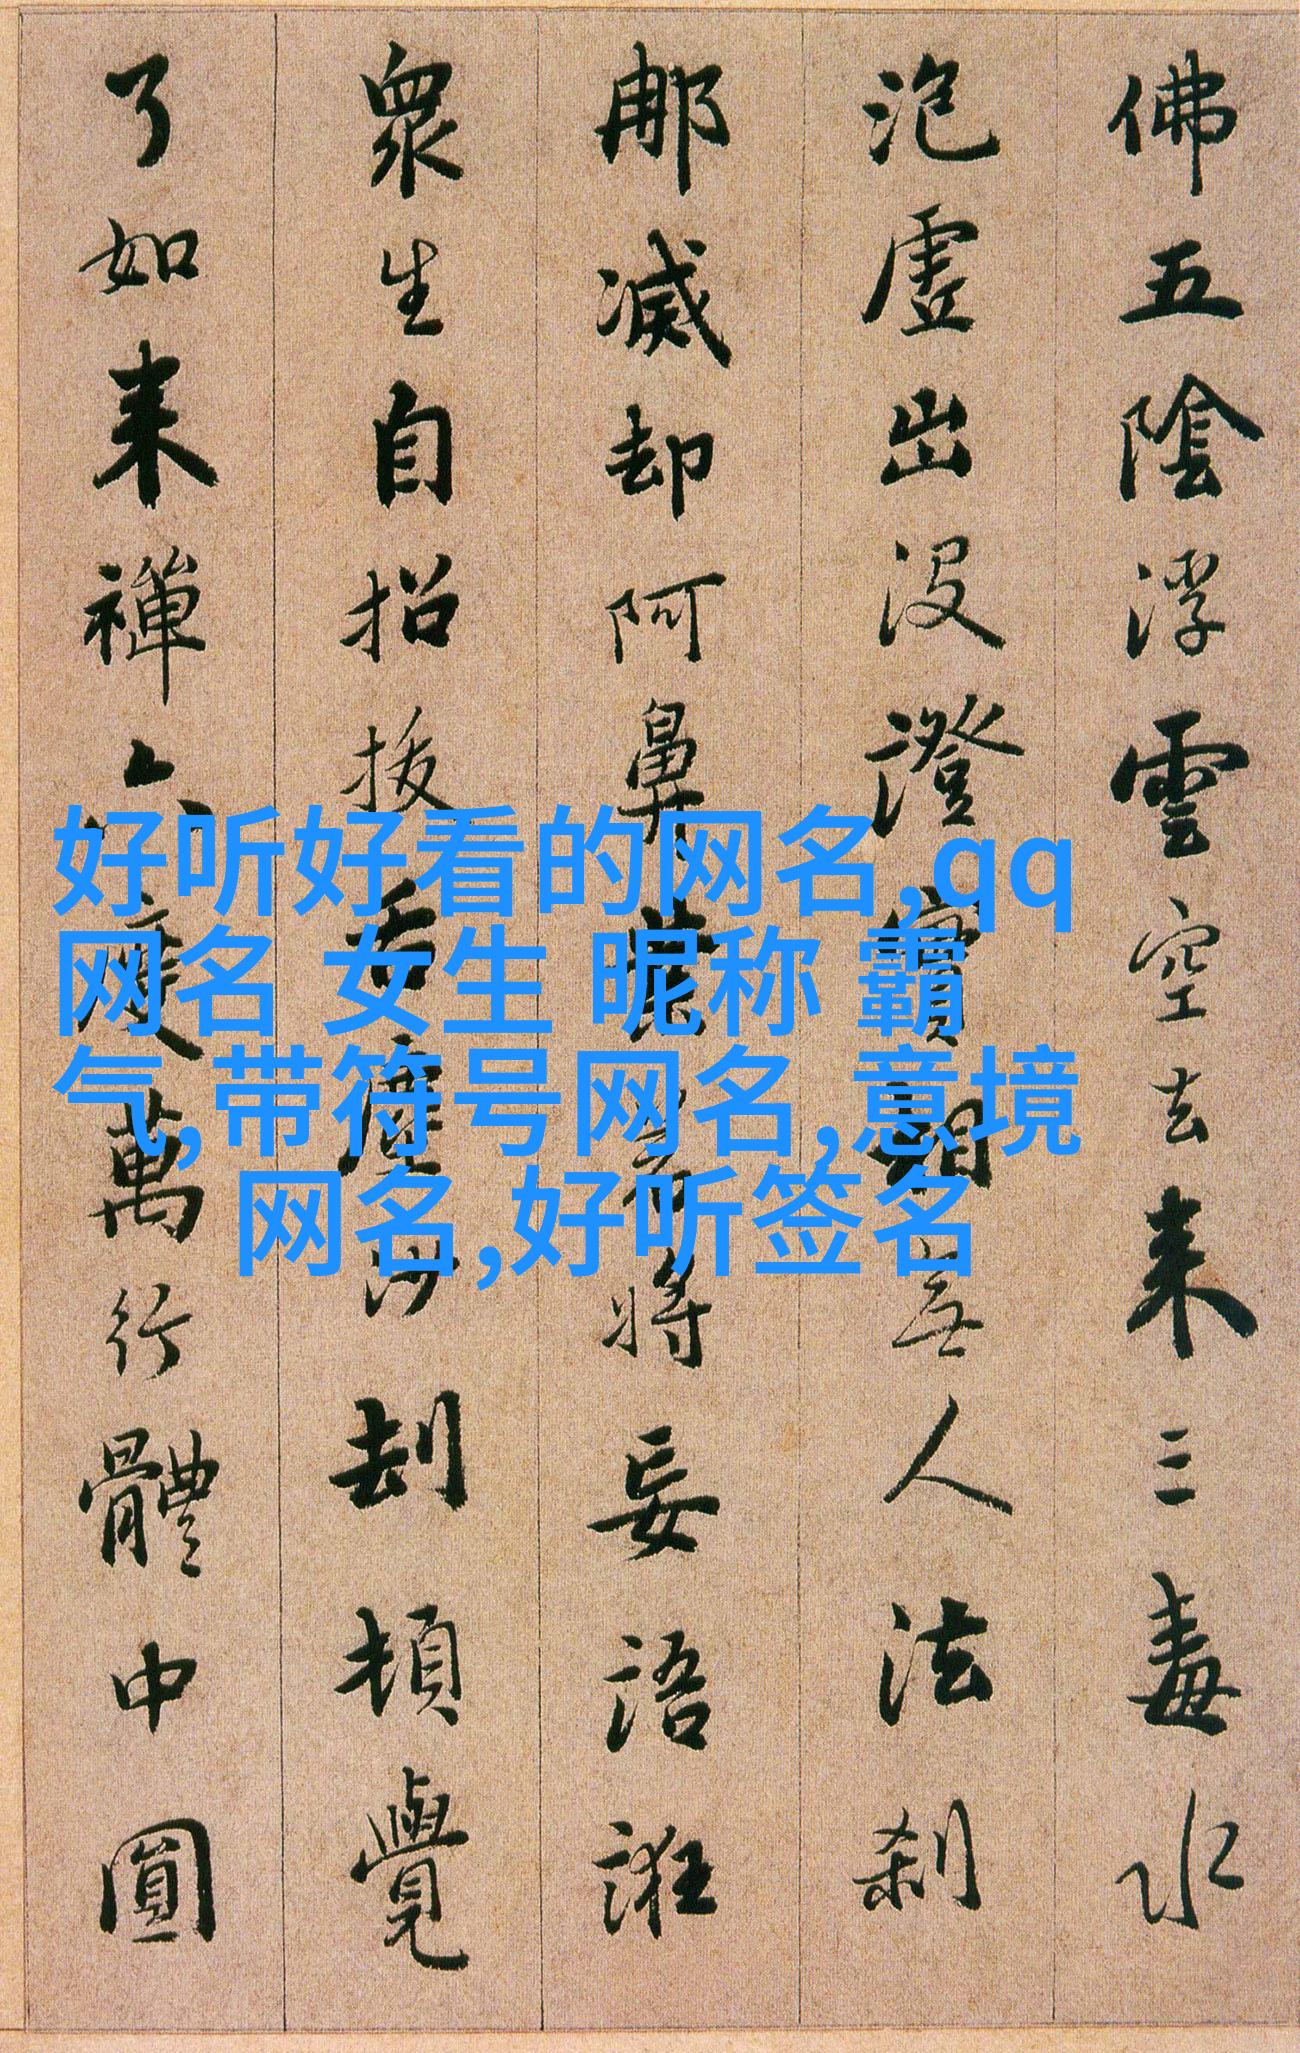 佛五陰浮雲空去来三毒水
泡虚出没證實相無人法刹
那滅却阿鼻業若將妄語誑
衆生自招拔舌塵沙劫頓覺
了如来禪六度萬行體中圓
好听好看的网名,qq
网名 女生 昵称 霸
气,带符号网名,意境
网名,好听签名